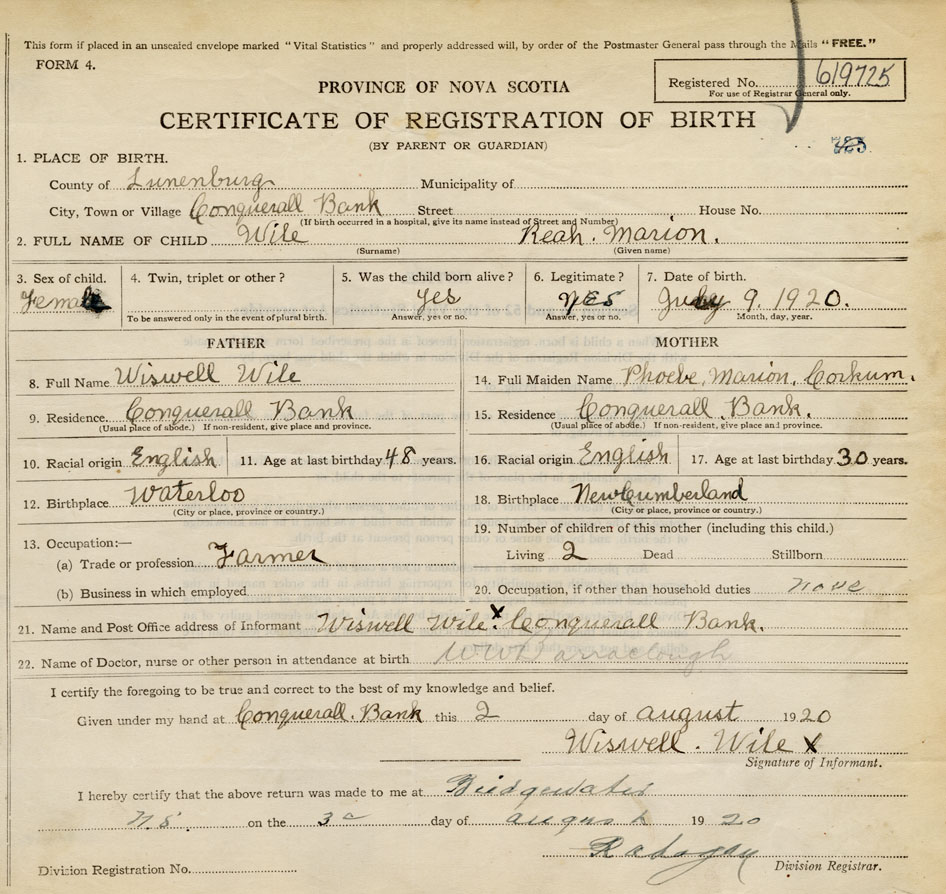 This form if placed in an unsealed envelope marked "Vital Statistics" and properly addressed will, by order of the Postmaster General pass through the Mails "FREE."
FORM 4.
Registered No. 619725
For use of Registrar General only.
PROVINCE OF NOVA SCOTIA
CERTIFICATE OF REGISTRATION OF BIRTH
(BY PARENT OR GUARDIAN)
1. PLACE OF BIRTH.
County of Lunenburg Municipality of
City, Town or Village Conquerall Bank Street House No.
(If birth occurred in a hospital, give its name instead of Street and Number)
2. FULL NAME OF CHILD Wile Reah. Marion.
(Surname) (Given name)
3. Sex of child. 4. Twin, triplet or other? 5. Was the child born alive? 6. Legitimate? 7. Date of birth.
Female yes yes July 9. 1920.
To be answered only in the event of plural birth. Answer, yes or no. Answer, yes or no. Month, day, year.
FATHER MOTHER
8. Full Name Wiswell Wile 14. Full Maiden Name Phoebe, Marion, Corkum.
9. Residence Conquerall Bank 15. Residence Conquerall Bank.
(Usual place of abode.) If non-resident, give place and province. (Usual place of abode.) If non-resident, give place and province.
10. Racial origin English 11. Age at last birthday 48 years. 16. Racial origin English 17. Age at last birthday 30 years.
12. Birthplace Waterloo 18. Birthplace New Cumberland
(City or place, province or country.) (City or place, province or country.)
13. Occupation:— 19. Number of children of this mother (including this child.)
(a) Trade or profession Farmer Living 2 Dead Stillborn
(b) Business in which employed 20. Occupation, if other than household duties none
21. Name and Post Office address of Informant Wiswell Wile. x Conquerall Bank.
22. Name of Doctor, nurse or other person in attendance at birth
I certify the foregoing to be true and correct to the best of my knowledge and belief.
Given under my hand at Conquerall. Bank this 2 day of august 1920
Wiswell. Wile x
Signature of Informant.
I hereby certify that the above return was made to me at Bridgewater
N.S. on the 3 day of august 1920
Division Registration No. Division Registrar.